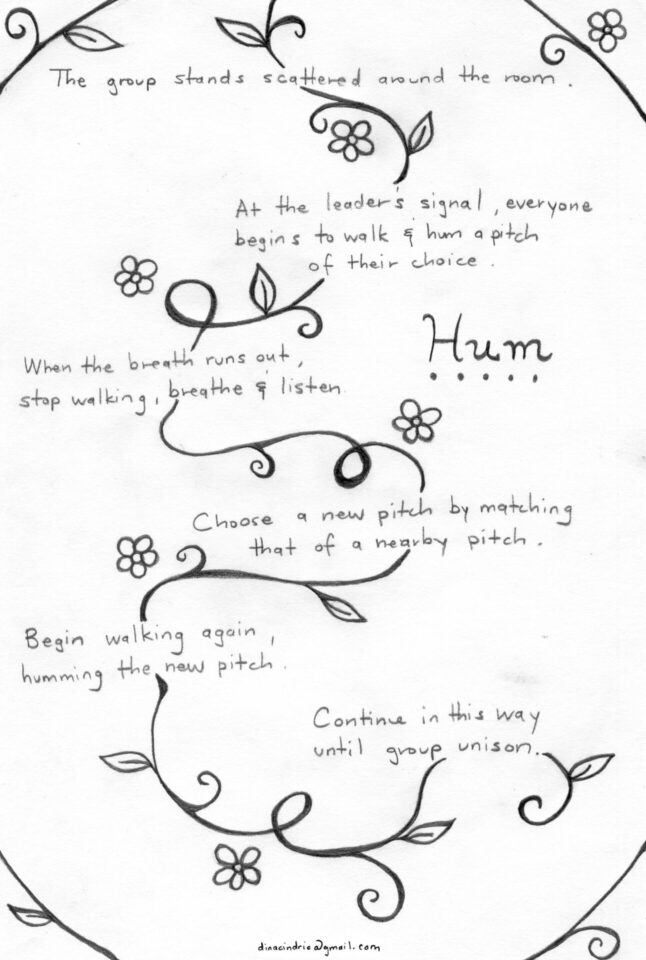 The group stands scattered around the room.
At the leader's signal, everyone
begins to walk & hum a pitch
of their choice.
Hum
When the breath runs out,
stop walking, breathe & listen.
Choose a new pitch by matching
that of a nearby pitch.
Begin walking again,
humming the new pitch.
Continue in this way
until group unison.
dinacindric@gmail.com